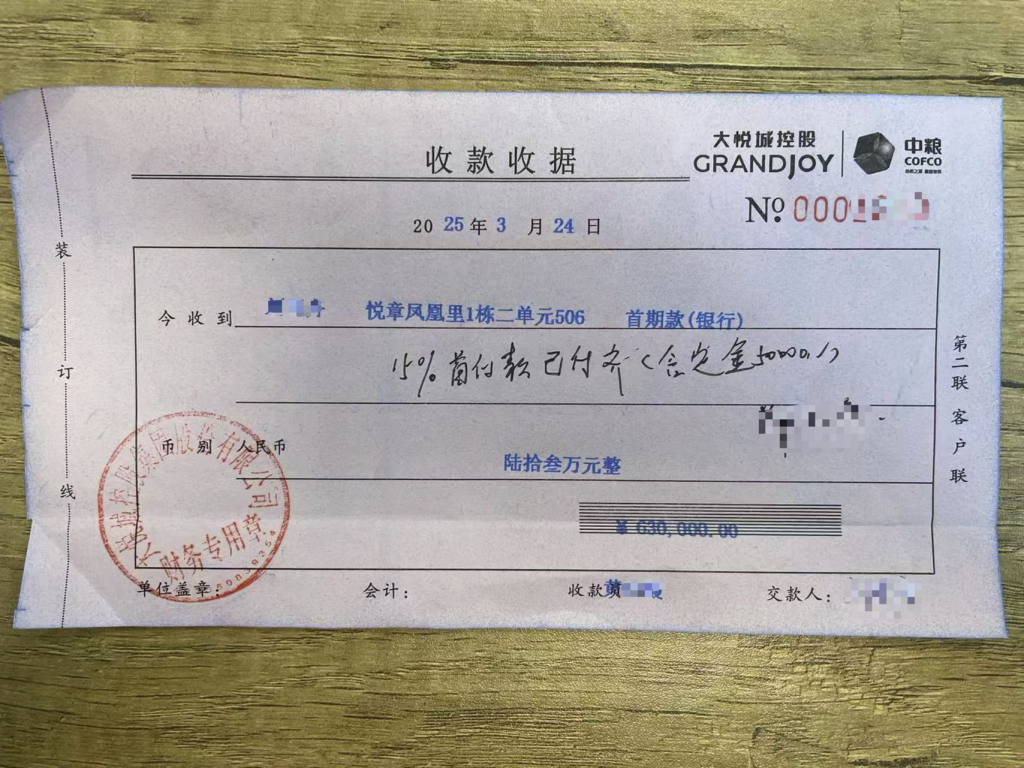 大悦城控股
GRANDJOY
中粮
COFCO
收款收据
№ 000
2025年3月24日
装
订
线
今收到 悦章凤凰里1栋二单元506 首期款(银行)
15%首付款已付齐(含定金50000.)
币别 人民币
陆拾叁万元整
¥ 630,000.00
大悦城控股集团股份有限公司
财务专用章
单位盖章:
会计:
收款
交款人:
第二联 客户联